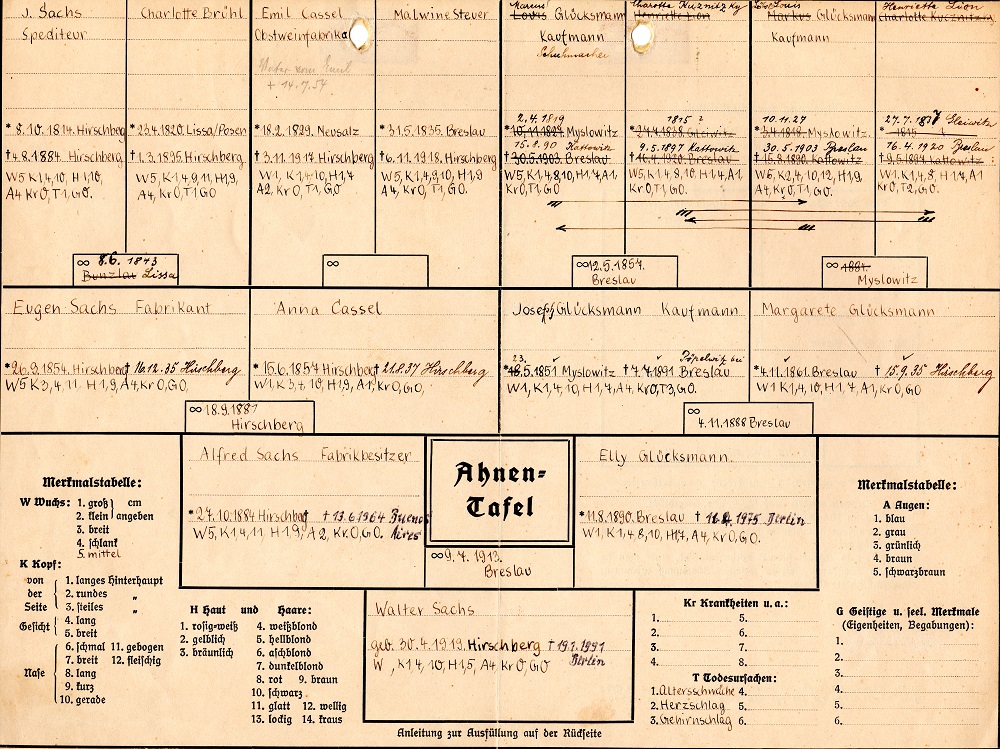 J. Sachs
Spediteur
* 8.10.1814. Hirschberg
† 4.8.1884. Hirschberg
W5 K1,4,10, H1,10,
A4 Kr0, T1. G0.
Charlotte Brühl
* 23.4.1820. Lissa/Posen
† 1.3.1895. Hirschberg
W5, K1,4,9,11, H1,9,
A4, Kr0, T1 G0
∞ 8.6. 1843
Bunzlau Lissa
Emil Cassel
Obstweinfabrika
Vater vom Emil
+ 14.7.54
* 18.2. 1829. Neusalz
† 3.11.1917. Hirschberg
W1, K1,4,10, H1,7,
A2. Kr0, T1, G0
Malwine Steuer
* 31.5.1835. Breslau
† 6.11.1918. Hirschberg
W5, K1,4,9,10, H1,9,
A4, Kr0, T1, G0.
∞
Marcus
Louis Glücksmann
Kaufmann
Schuhmacher
2.4.1819
* 10.11.1827 Myslowitz
15.8.90 Kattowitz
† 30.5.1903. Breslau
W5, K1,4,8,10, H1,7,4,A1
Kr0, T1 G0
Charotte Kuznitzky
Henriette Lion
1815 ?
* 27.4.1838. Gleiwitz
9.5.1897 Kattowitz
† 16.4.1920. Breslau
W5, K1,4,8,10, H1,7,4, A1
Kr0, T1. G0.
∞ 12.5.1857.
Breslau
Louis
Markus Glücksmann
Kaufmann
10.11.27
* 2.4.1819. Myslowitz.
30.5.1903 Breslau
† 15.8.1890. Kattowitz
W5, K2,4,10,12, H1,7
A4, Kr0, T1 G0.
Henriette Lion
Charlotte Kucznitzky
27.7.1837 Gleiwitz
* 1815
16.4.1920 Breslau
† 9.5.1897. Kattowitz
W1. K1,4,8, H1,7,4 A1
Kr0, T2, G0.
∞ 1884.
Myslowitz
Eugen Sachs Fabrikant
* 26.9.1854. Hirschberg † 16.12.35 Hirschberg
W5 K3,4,11, H1,9, A4, Kr0, G0,
Anna Cassel
* 15.6.1857 Hirschberg † 21.8.37 Hirschberg
W1, K3,4,10, H1,9, A1, Kr0, G0,
∞ 18.9.1881
Hirschberg
Joseph Glücksmann Kaufmann
23. Pöpelwitz bei
* 18.5.1851 Myslowitz † 7.7.1891 Breslau
W1, K1,4,10, H1,7, A4, Kr0, T3, G0.
Margarete Glücksmann
* 4.11.1861. Breslau † 15.9.35 Hirschberg
W1 K1,4,10, H1,7, A1, Kr0, G0
∞
4.11.1888 Breslau
Alfred Sachs Fabrikbesitzer
* 27.10.1884 Hirschberg † 13.6.1964 Buenos
W5, K1,4,11, H1,9, A2, Kr.0, G0. Aires
Ahnen=
Tafel
∞ 9.4.1913.
Breslau
Elly Glücksmann.
* 11.8.1890. Breslau † 1975 Berlin
W1, K1,4,8,10, H1,7, A4, Kr0, G0.
Merkmalstabelle:
W Wuchs: 1. groß } cm
2. klein } angeben
3. breit
4. schlank
5. mittel
K Kopf:
von der Seite
1. langes Hinterhaupt
2. rundes "
3. steiles "
Gesicht
4. lang
5. breit
Nase
6. schmal 11. gebogen
7. breit 12. fleischig
8. lang
9. kurz
10. gerade
H Haut und Haare:
1. rosig-weiß 4. weißblond
2. gelblich 5. hellblond
3. bräunlich 6. aschblond
7. dunkelblond
8. rot 9. braun
10. schwarz
11. glatt 12. wellig
13. lockig 14. kraus
Walter Sachs
geb. 30.4.1919. Hirschberg † 19.1.1991
W , K1,4,10, H1,5, A4 Kr0, G0 Berlin
Merkmalstabelle:
A Augen:
1. blau
2. grau
3. grünlich
4. braun
5. schwarzbraun
Kr Krankheiten u. a.:
1. 5.
2. 6.
3. 7.
4. 8.
T Todesursachen:
1. Altersschwäche 4.
2. Herzschlag 5.
3. Gehirnschlag 6.
G Geistige u. seel. Merkmale
(Eigenheiten, Begabungen):
1.
2.
3.
4.
5.
6.
Anleitung zur Ausfüllung auf der Rückseite